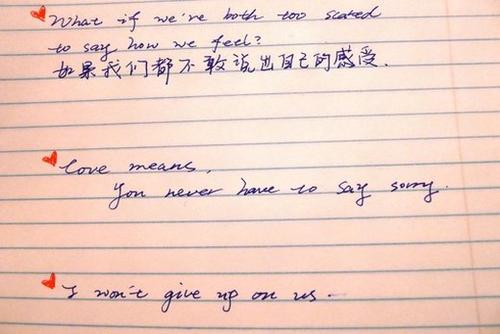 What if we're both too scared
to say how we feel?
如果我们都不敢说出自己的感受.
Love means,
You never have to say sorry.
I won't give up on us.